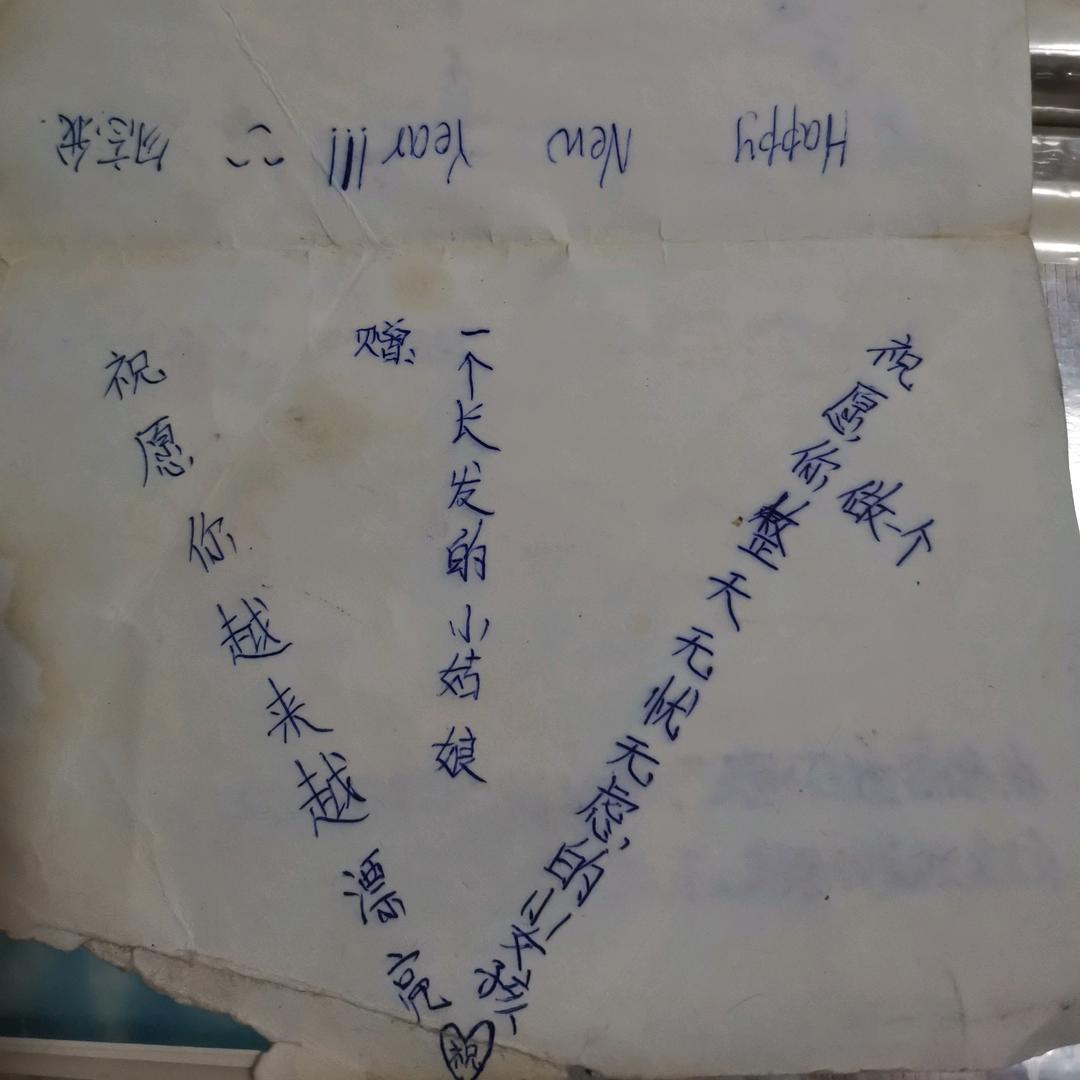 Happy New Year!!! 勿忘我.
赠
一个长发的小姑娘
祝愿你越来越漂亮
祝愿你整天无忧无虑的
做一个
祝